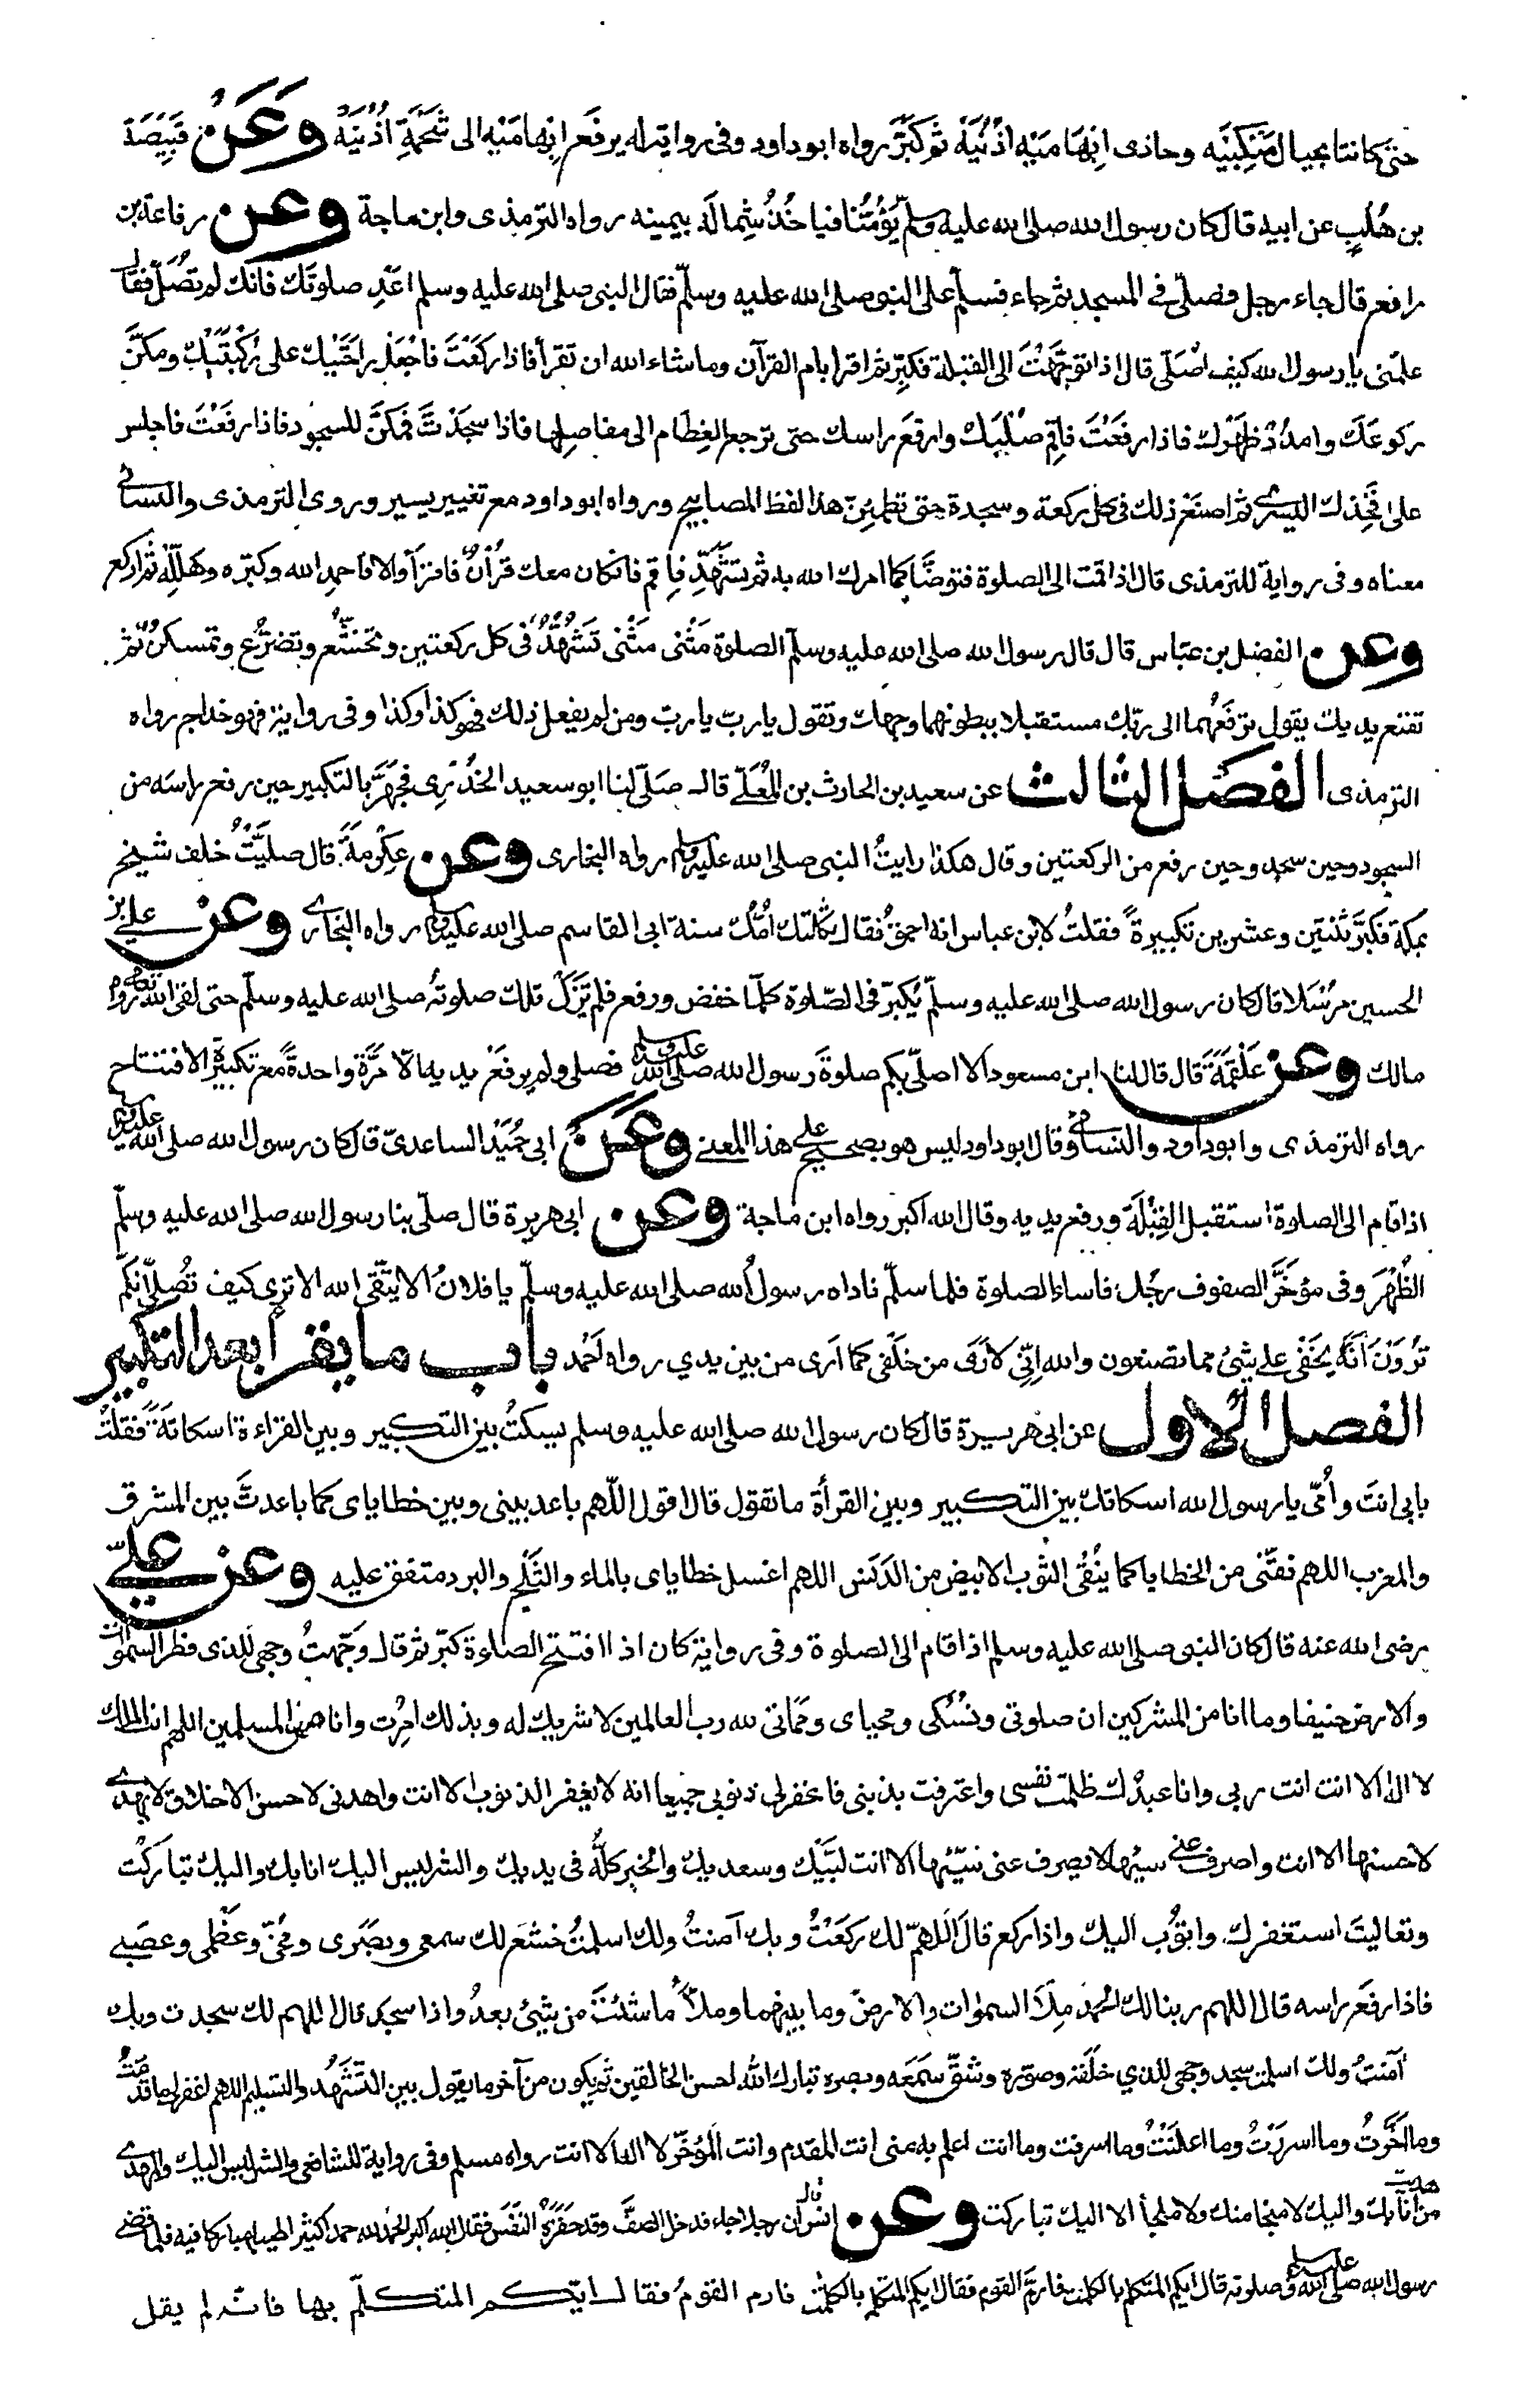 حتى كانتا بحيال مَنْكِبَيْه وحاذى اِبْهَامَيْهِ اُذُنَيْهِ ثم كَبَّرَ رواه ابو داود وفى رواية له يرفَع اِبْهامَيْهِ الى شَحْمَةِ اُذُنَيْهِ وَعَنْ قَبِيصَةَ
بن هُلْبٍ عن ابيه قال كان رسول الله صلى الله عليه وسلم يَؤُمُّنَا فياخُذُ شِمالَه بيمينه رواه الترمذى وابن ماجة وعن رفاعة بن
رافع قال جاء رجل فصلّى فى المسجد ثم جاء فسلّم على النبى صلى الله عليه وسلّم فقال النبى صلى الله عليه وسلم اَعِدْ صلوتك فانك لم تُصَلِّ فقال
علّمنى يا رسول الله كيف اُصَلّى قال اذا توجَّهْتَ الى القبلة فكبِّر ثم اقرا بام القرآن وما شاء الله ان تقرأ فاذا ركَعْتَ فاجْعَلْ راحَتَيْك على رُكْبَتَيْك ومكِّنْ
ركوعَك وامدُدْ ظَهْرك فاذا رفَعْتَ فاَقِم صُلْبَك وارفَعْ راسك حتى ترجع العِظَام الى مفاصِلِها فاذا سجَدْتَّ فمَكِّنْ للسجود فاذا رفَعْتَ فاجلس
على فَخِذك اليسرى ثم اصنَعْ ذلك فى كل ركعة وسجدة حتى تطمئِنّ هذا لفظ المصابيح ورواه ابو داود مع تغيير يسير وروى الترمذى والنسائى
معناه وفى رواية للترمذى قال اذا قمت الى الصلوة فتوضَّأ كما امرك الله به ثم تشَهَّدْ فاَقِم فان كان معك قُرآنٌ فاقرأ والا فاحمدِ الله وكبّره وهَلِّلْه ثم اركع
وعن الفضل بن عبّاس قال قال رسول الله صلى الله عليه وسلّم الصلوة مَثْنى مَثْنى تَشَهُّدٌ فى كل ركعتين وتخشُّع وتضرُّع وتمسكن ثم
تقنع يديك يقول ترفَعُهما الى ربّك مستقبلا ببطونهما وجهك وتقول يا ربّ يا ربّ ومن لم يفعل ذلك فهو كذا وكذا وفى رواية فهو خداج رواه
الترمذى الفصل الثالث عن سعيد بن الحارث بن المُعَلّى قال صَلّى لنا ابو سعيد الخُدْرِى فجَهَر بالتكبير حين رفع راسَه من
السجود وحين سجد وحين رفع من الركعتين وقال هكذا رايتُ النبى صلى الله عليه وسلم رواه البخارى وعن عِكْرِمَةَ قال صليَّتُ خلف شيخ
بمكة فكَبَّر ثنتين وعشرين تكبيرةً فقلتُ لابن عباس انه احمقُ فقال ثكلتك اُمُّك سنة ابى القاسم صلى الله عليه وسلم رواه البخارى وعن على بن
الحسين مرُسَلا قال كان رسول الله صلى الله عليه وسلّم يُكبّر فى الصّلوة كلّما خفض ورفع فلم تَزَلْ تلك صلوتُه صلى الله عليه وسلّم حتى لقى الله تعالى رواه
مالك وعن عَلْقَمَةَ قال قال لنا ابن مسعود الا اصلّى بكم صلوةَ رسول الله صلى الله عليه وسلم فصلى ولم يرفَعْ يديه الّا مَرَّة واحدةً مع تكبيرة الافتتاح
رواه الترمذى وابو داود والنسائى وقال ابو داود ليس هو بصحيح على هذا المعنى وعن ابى حُمَيْد الساعدىّ قال كان رسول الله صلى الله عليه وسلم
اذا قام الى الصلوة استقبل القِبْلَة ورفع يديه وقال الله اكبر رواه ابن ماجة وعن ابى هريرة قال صلّى بنا رسول الله صلى الله عليه وسلّم
الظُهْرَ وفى مؤخَّر الصفوف رجُل فاساء الصلوة فلما سلّم ناداه رسولُ الله صلى الله عليه وسلّم يا فلانُ الا تتّقى الله الا ترى كيف تُصلّى انكم
تُرَوْنَ اَنَّهُ يخَفٰى علىّ شئ مما تصنعون والله اِنّى لَاَرٰى من خلفى كما اَرى من بين يدي رواه احمد باب ما يقرأ بعد التكبير
الفصل الاول عن ابى هريرة قال كان رسول الله صلى الله عليه وسلم يسكتُ بين التكبير وبين القراءة اسكاتةً فقلتُ
بابى انتَ واُمّى يا رسول الله اسكاتك بين التكبير وبين القرأة ما تقول قال اقول اللّهم باعد بينى وبين خطاياى كما باعدتَّ بين المشرق
والمغرب اللهم نقّنى من الخطايا كما يُنَقَّى الثوب الابيض من الدَنَس اللهم اغسل خطاياى بالماء والثلج والبرد متفق عليه وعن علىّ
رضى الله عنه قال كان النبى صلى الله عليه وسلم اذا قام الى الصلوة وفى رواية كان اذا افتتح الصلوة كبّر ثم قال وَجَّهتُ وجهى للذى فطر السموات
والارض حنيفا وما انا من المشركين ان صلوتى ونُسُكى ومحياى ومَمَاتى لله رب العالمين لا شريك له وبذلك اُمِرْت وانا من المسلمين اللهم انت الملك
لا اله الا انت انت ربى وانا عبدُك ظلمت نفسى واعترفت بذنبى فاغفر لى ذنوبى جميعا انه لا يغفر الذنوب الا انت واهدنى لاحسن الاخلاق لا يهدى
لاحسنها الا انت واصرف عنى سيئها لا يصرف عنى سيّئها الا انت لبّيك وسعديك والخير كلُّه فى يديك والشر ليس اليك انا بك واليك تباركْت
وتعاليتَ استغفرك واتوُب اليك واذا ركع قال اللّهمّ لك ركَعْتُ وبك آمنتُ ولك اسلمتُ خشَع لك سمعى وبصَرى ومُخّى وعَظْمى وعصَبى
فاذا رفَع راسه قال اللهم ربنا لك الحمد مِلْأَ السمٰوات والارض وما بينهما وملأ ما شئتَ من شئ بعدُ واذا سجد قال اللهم لك سجدت وبك
آمنتُ ولك اسلمت سجد وجهى للذي خلَقَه وصوّره وشقّ سَمْعَه وبصره تبارك اللهُ احسن الخالقين ثم يكون من آخر ما يقول بين التَشَهُّد والتسليم اللهم اغفر لى ما قدّمتُ
وما اخَّرتُ وما اسررتُ وما اعلنْتُ وما اسرفت وما انت اعلم به منى انت المقدم وانت المُؤخّر لا اله الا انت رواه مسلم وفى رواية للشافعى والشر ليس اليك والمهدى
من هديت انا بك واليك لا منجا منك ولا ملجأ الا اليك تباركت وعن انس قال ان رجلا جاء فدخل الصفّ وقد حفَزَهُ النَفَس فقال الله اكبر الحمد لله حمدا كثيرا طيبا مباركا فيه فلما قضى
رسول الله صلى الله عليه وسلم صلوته قال ايكم المتكلم بالكلمات فارمَّ القوم فقال ايكم المتكلم بالكلمت فارم القومُ فقال ايّكم المتكلّم بها فانه لم يقل